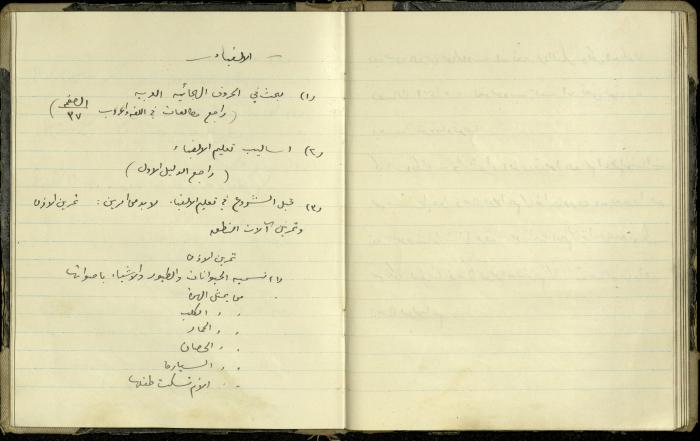 - الالفباء -
(١) مبحث في الحروف الهجائية العربية
( راجع مطالعات في اللغة والادب الصفحة ٣٧ )
(٢) اساليب تعليم الالفباء
( راجع الدليل الاول )
(٣) قبل الشروع في تعليم الالفباء لا بد من امرين : تمرين الاذن
وتمرين آلات النطق
تمرين الاذن
(١) تسمية الحيوانات والطيور والاشياء باصواتها
من يمثل الهرة
" " الكلب
" " الحمار
" " الحصان
" " السيارة
" " الام تسكت طفلها